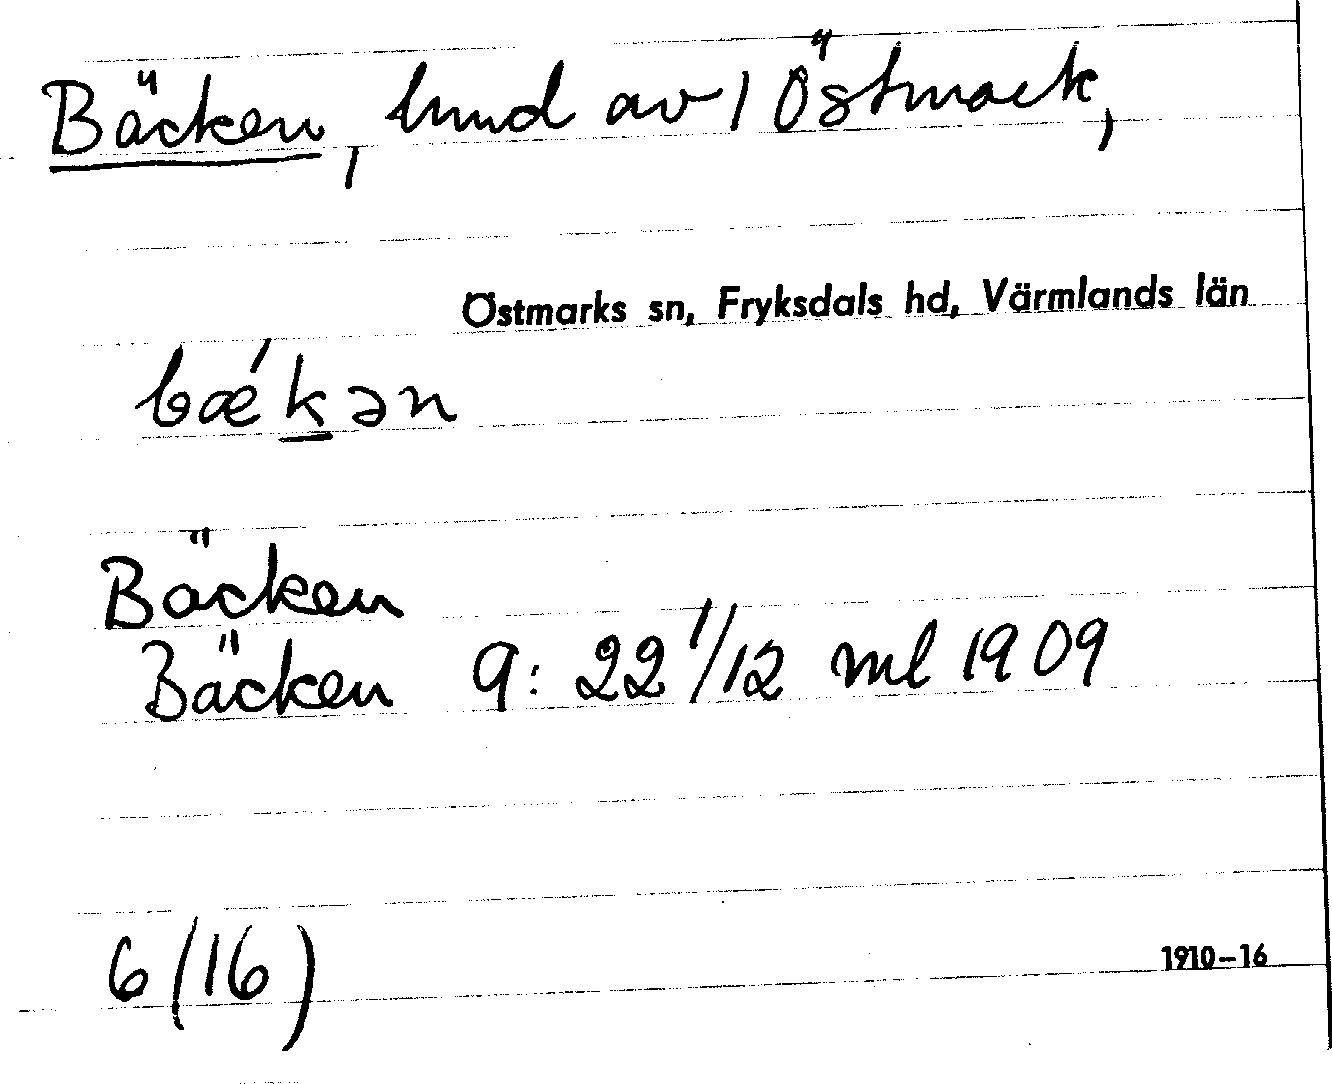 Bäcken, hmd av 1 Östmark,
Östmarks sn, Fryksdals hd, Värmlands län
bǽkən
Bäcken
Bäcken 9: 22 1/12 ml 1909
6 (16)
1910–16